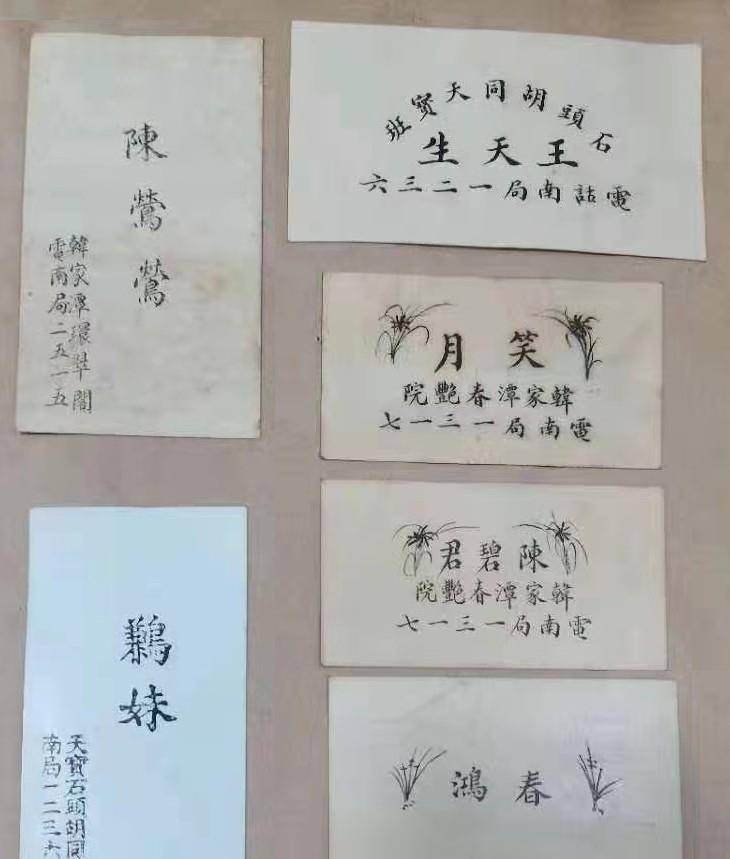 陳鶯鶯
韓家潭環翠閣
電南局二五一五
石頭胡同天寶班
王天生
電話南局一二三六
笑月
韓家潭春艷院
電南局一三一七
陳碧君
韓家潭春艷院
電南局一三一七
鶼妹
天寶石頭胡同
南局一二三六
春鴻